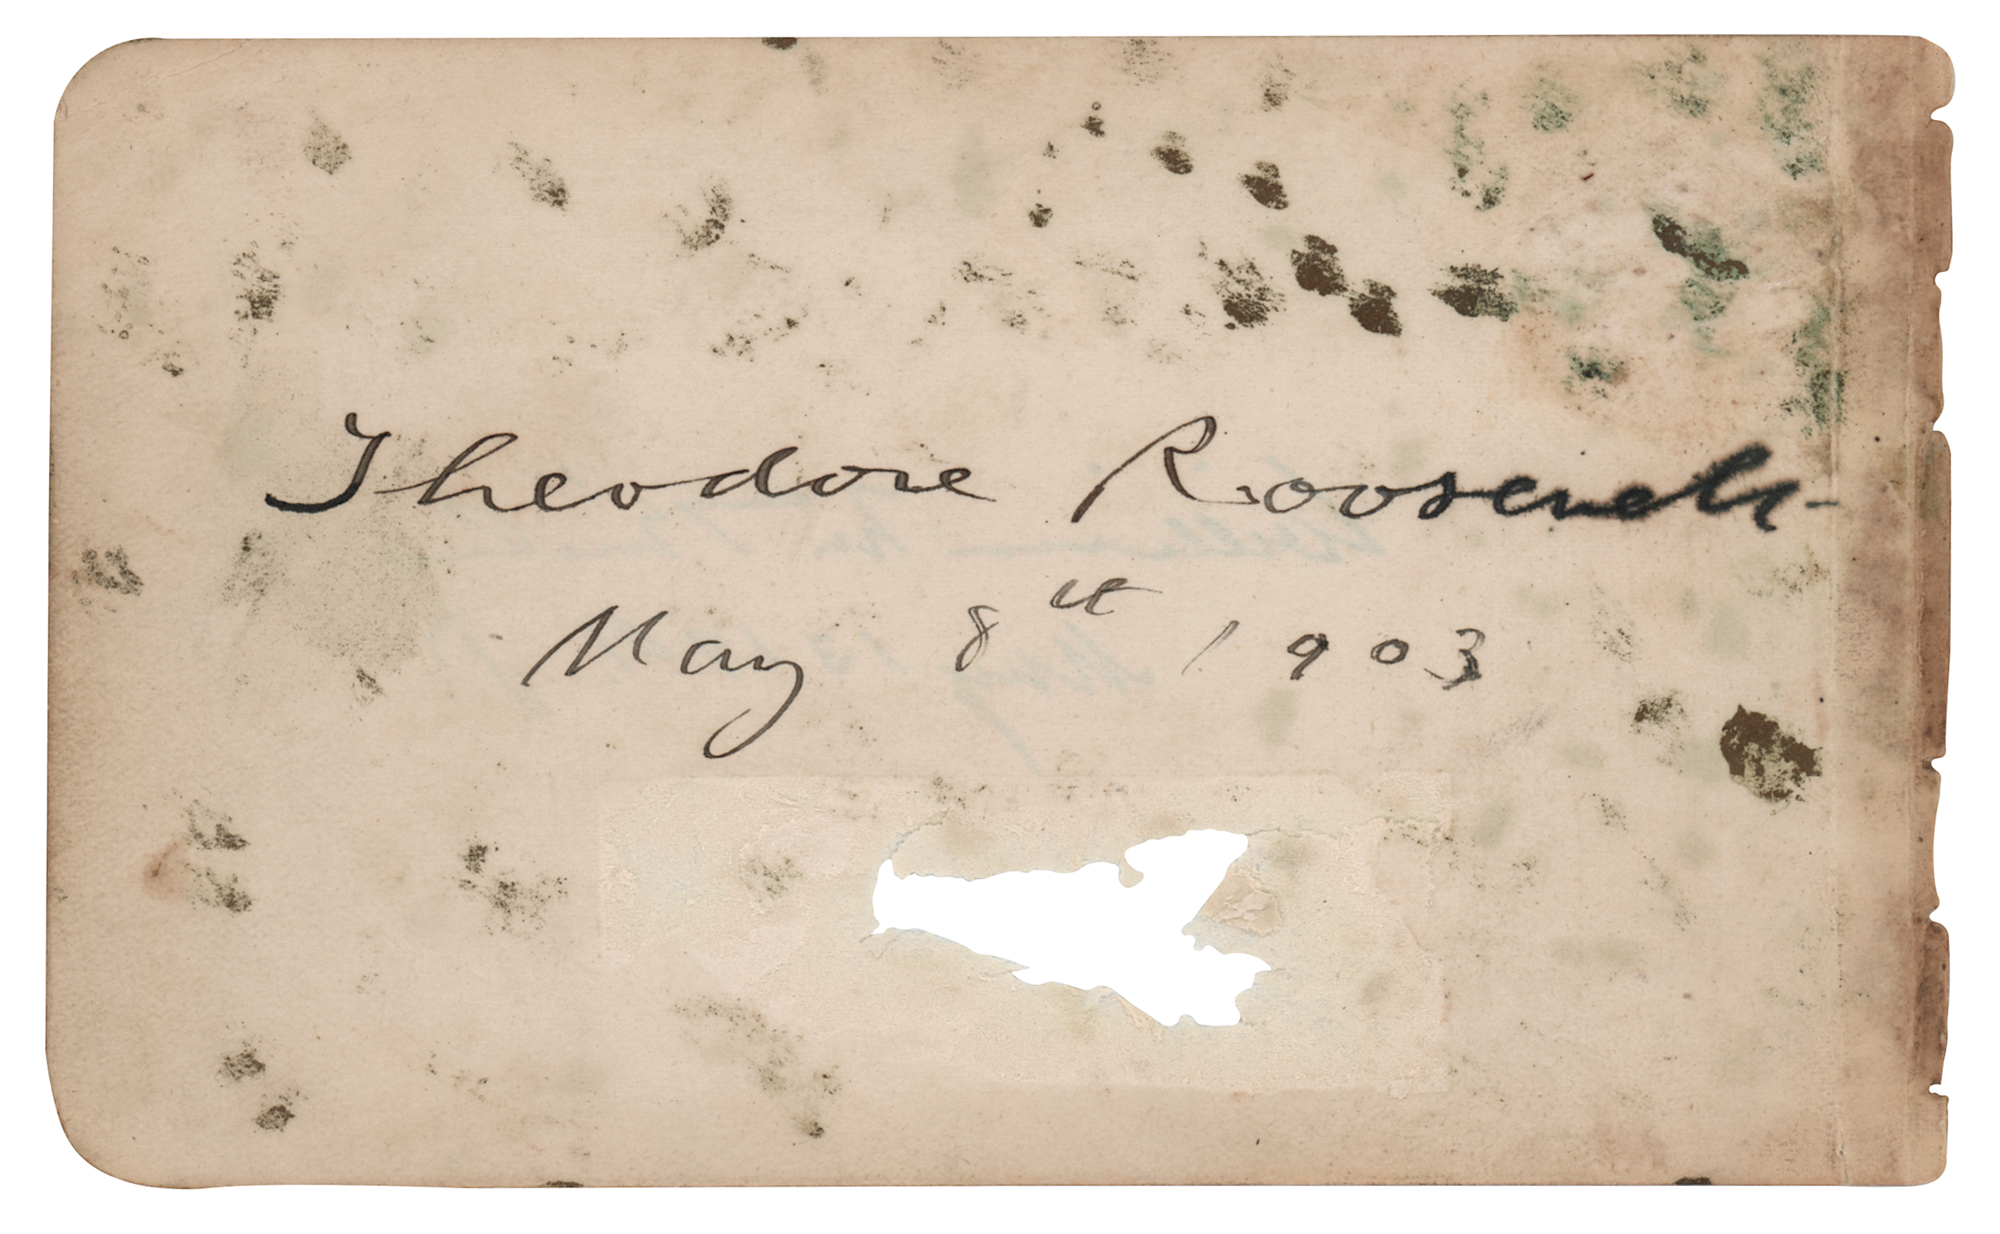 Theodore Roosevelt
May 8th 1903